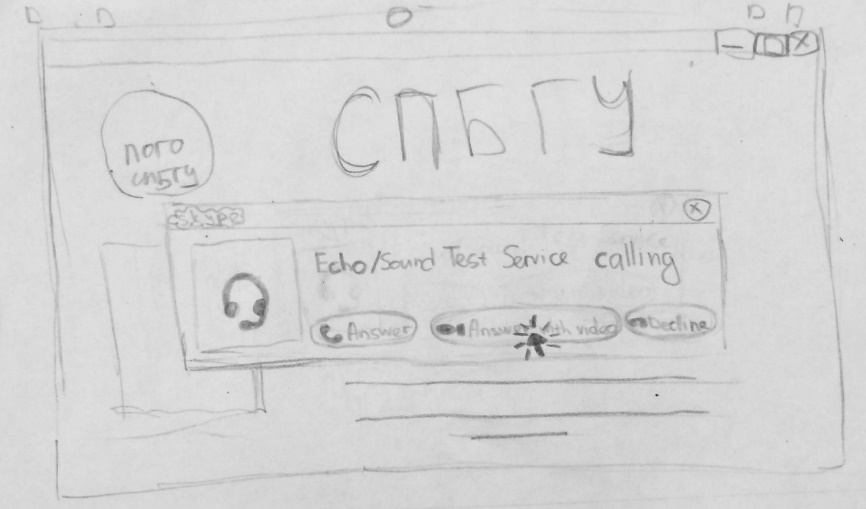 СПБГУ
лого
спбгу
skype
Echo/Sound Test Service calling
Answer
Answer with video
Decline